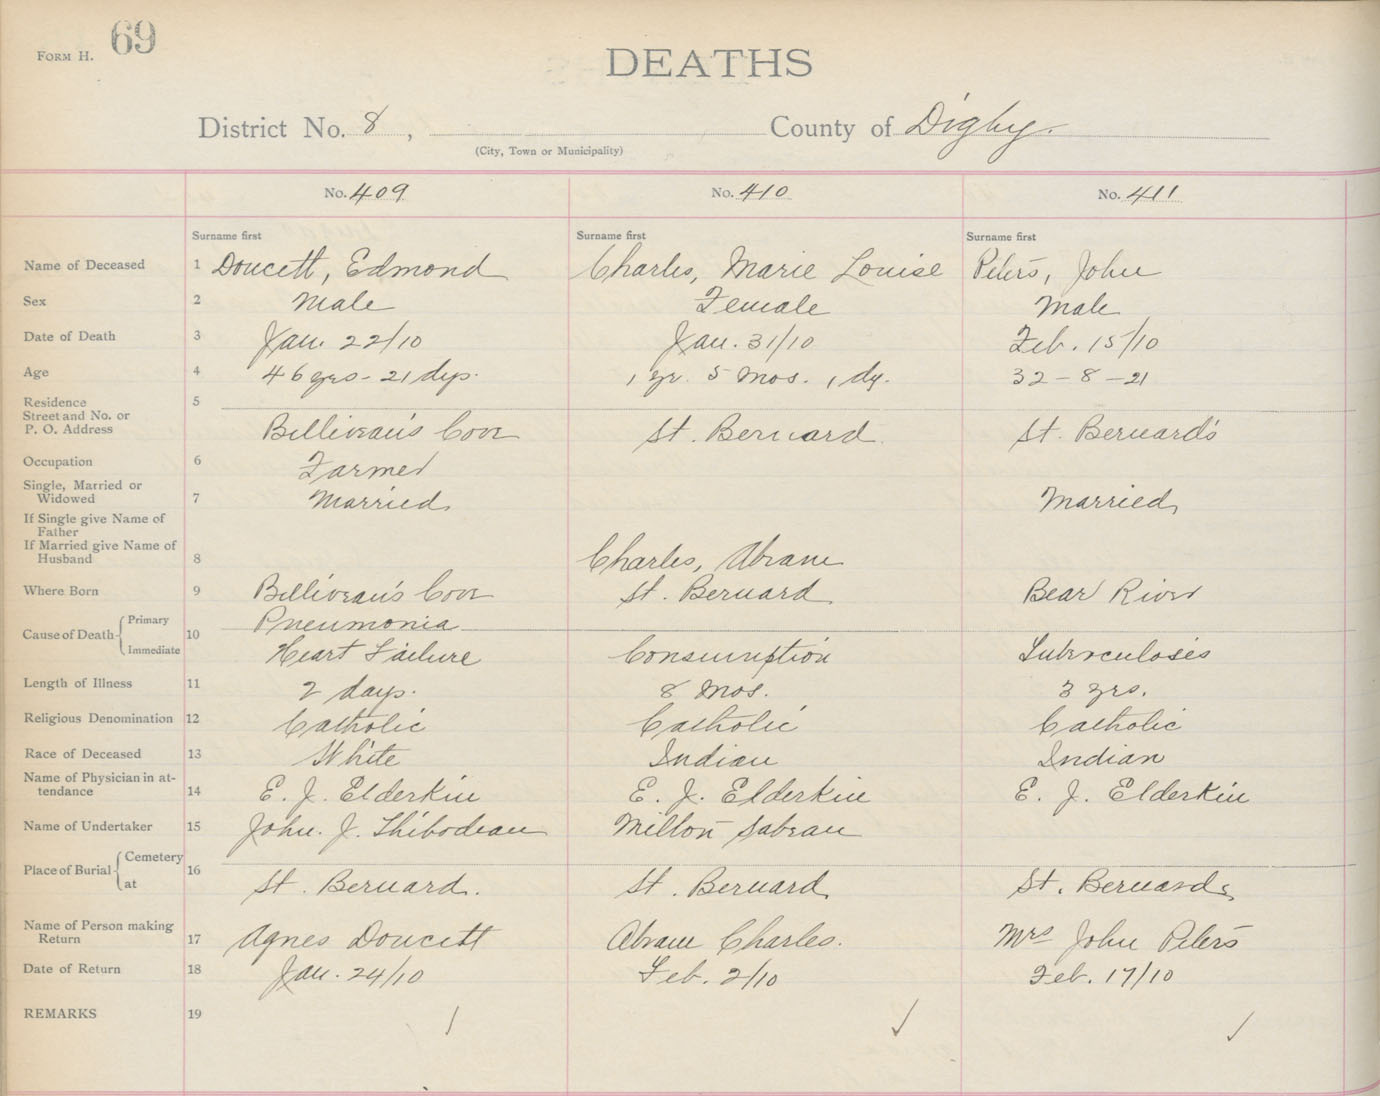 FORM H. 69
DEATHS
District No. 8 , County of Digby.
(City, Town or Municipality)
No. 409 No. 410 No. 411
Surname first Surname first Surname first
Name of Deceased 1 Doucett, Edmond Charles, Marie Louise Peters, John
Sex 2 Male Female Male
Date of Death 3 Jan. 22/10 Jan. 31/10 Feb. 15/10
Age 4 46 yrs - 21 dys. 1 yr. 5 Mos. 1 dy. 32 - 8 - 21
Residence 5
Street and No. or
P. O. Address Belliveau's Cove St. Bernard St. Bernard's
Occupation 6 Farmer
Single, Married or
Widowed 7 Married Married
If Single give Name of
Father
If Married give Name of
Husband 8 Charles, Abram
Where Born 9 Belliveau's Cove St. Bernard Bear River
Cause of Death Primary Pneumonia
10
Immediate Heart Failure Consumption Tuberculosis
Length of Illness 11 2 days. 8 Mos. 3 yrs.
Religious Denomination 12 Catholic Catholic Catholic
Race of Deceased 13 White Indian Indian
Name of Physician in at-
tendance 14 E. J. Elderkin E. J. Elderkin E. J. Elderkin
Name of Undertaker 15 John. J. Thibodeau Milton Sabean
Place of Burial Cemetery 16
at St. Bernard. St. Bernard St. Bernards
Name of Person making
Return 17 Agnes Doucett Abram Charles. Mrs John Peters
Date of Return 18 Jan. 24/10 Feb. 2/10 Feb. 17/10
REMARKS 19